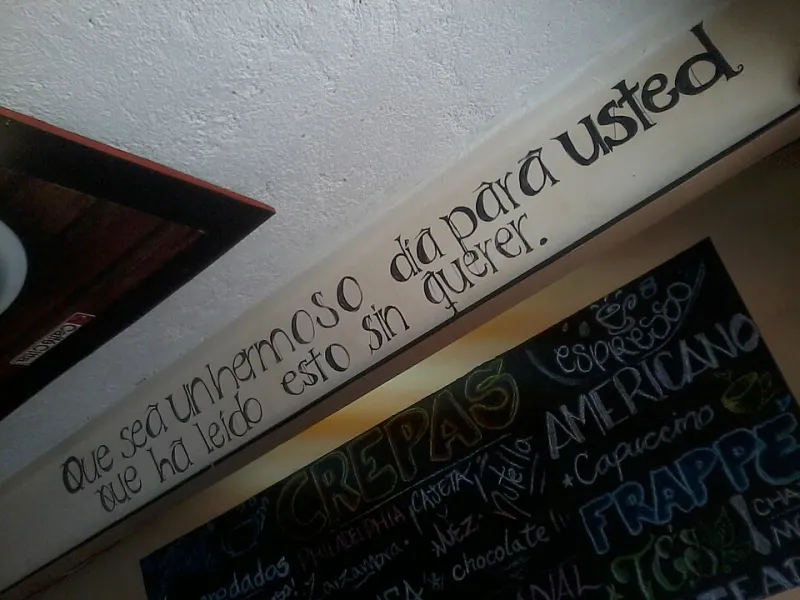 Que sea un hermoso día para usted
que ha leído esto sin querer.
CREPAS
PHILADELPHIA
ZARZAMORA.
CAJETA
NUEZ
Nutella
chocolate!!
espresso
AMERICANO
*Capuccino
FRAPPÉ
TÉS